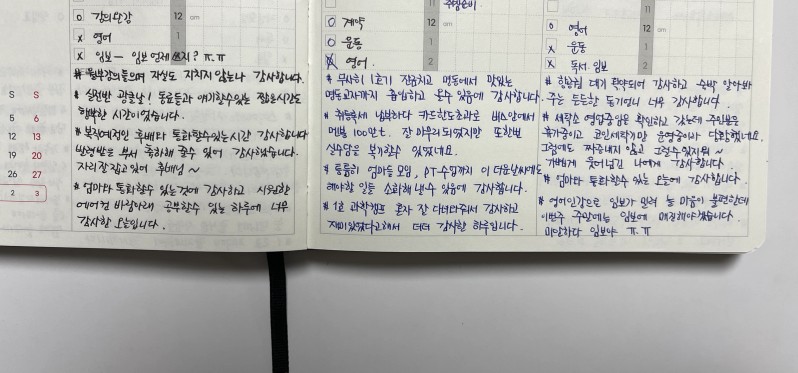 S S
5 6
12 13
19 20
26 27
2 3
o 강의수강
x 영어
x 임보— 임보 언제 쓰지? ㅠ.ㅠ
12 am
1
2
# 월부강의들으며 자실도 지치지 않는나 감사합니다.
# 실전반 광클날! 동료들과 얘기할수있는 짧은시간도
행복한 시간이었습니다.
# 복직예정인 후배와 통화할수있는시간 감사합니다
반영받은 부서 축하해 줄수 있어 감사했습니다.
자리잘잡고있어 후배님~
# 엄마와 통화할수 있는것에 감사하고 시원한
에어컨 바람아래 공부할수 있는 하루에 너무
감사한 오늘입니다.
11
주담준비
o 계약
o 운동
x 영어.
12 am
1
2
# 무사히 1호기 잔금치고 명동에서 맛있는
명동교자까지 흡입하고 올수 있음에 감사합니다.
# 취등록세 납부하다 카드한도초과로 버스안에서
멘붕 100만 t. 잘 마무리되었지만 또한번
실수담을 복기할수 있었네요.
# 틈틈히 아들 모임, PT수업까지 이 더운날씨에도
해야할 일들 소화해 낼수 있음에 감사합니다.
# 1호 과학캠프 혼자 잘 다녀와줘서 감사하고
재미있었다고해서 더더 감사한 하루입니다.
11
o 영어
x 운동
x 독서. 임보
12 am
1
2
주는 든든한 동기인 너무 감사합니다.
# 세탁소 영업중임은 확인하고 갔는데 주인분은
휴가중이고 코인세탁기만 운영중이라 다녀왔네요.
그럼에도 짜증내지 않고 그럴수있지뭐~
가볍게 웃어넘긴 나에게 감사합니다.
# 엄마와 통화할수 있는 오늘에 감사합니다.
# 영어인강으로 임보가 밀려 늘 마음이 불편한데
이번주 주말에는 임보에 매진해야겠습니다.
미안하다 임보야 ㅠ.ㅠ